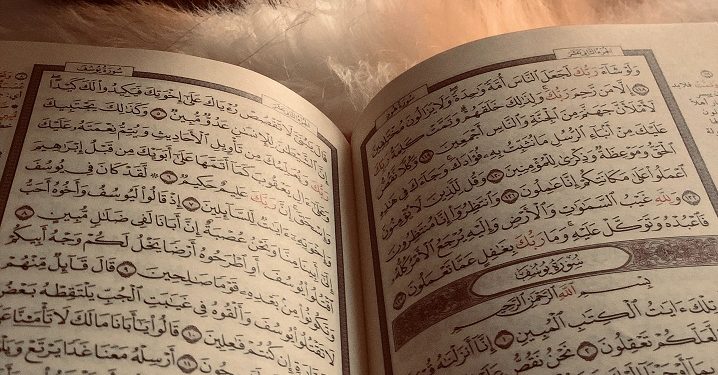 سُورَةُ هُودٍ
وَلَوۡ شَآءَ رَبُّكَ لَجَعَلَ ٱلنَّاسَ أُمَّةٗ وَٰحِدَةٗۖ وَلَا يَزَالُونَ مُخۡتَلِفِينَ
١١٨ إِلَّا مَن رَّحِمَ رَبُّكَۚ وَلِذَٰلِكَ خَلَقَهُمۡۗ وَتَمَّتۡ كَلِمَةُ رَبِّكَ
لَأَمۡلَأَنَّ جَهَنَّمَ مِنَ ٱلۡجِنَّةِ وَٱلنَّاسِ أَجۡمَعِينَ ١١٩ وَكُلّٗا نَّقُصُّ
عَلَيۡكَ مِنۡ أَنۢبَآءِ ٱلرُّسُلِ مَا نُثَبِّتُ بِهِۦ فُؤَادَكَۚ وَجَآءَكَ فِي هَٰذِهِ
ٱلۡحَقُّ وَمَوۡعِظَةٞ وَذِكۡرَىٰ لِلۡمُؤۡمِنِينَ ١٢٠ وَقُل لِّلَّذِينَ لَا يُؤۡمِنُونَ
ٱعۡمَلُواْ عَلَىٰ مَكَانَتِكُمۡ إِنَّا عَٰمِلُونَ ١٢١ وَٱنتَظِرُوٓاْ إِنَّا مُنتَظِرُونَ
١٢٢ وَلِلَّهِ غَيۡبُ ٱلسَّمَٰوَٰتِ وَٱلۡأَرۡضِ وَإِلَيۡهِ يُرۡجَعُ ٱلۡأَمۡرُ كُلُّهُۥ
فَٱعۡبُدۡهُ وَتَوَكَّلۡ عَلَيۡهِۚ وَمَا رَبُّكَ بِغَٰفِلٍ عَمَّا تَعۡمَلُونَ ١٢٣
سُورَةُ يُوسُفَ
بِسۡمِ ٱللَّهِ ٱلرَّحۡمَٰنِ ٱلرَّحِيمِ
تِلۡكَ ءَايَٰتُ ٱلۡكِتَٰبِ ٱلۡمُبِينِ ١ إِنَّآ أَنزَلۡنَٰهُ
لَّعَلَّكُمۡ تَعۡقِلُونَ ٢ نَحۡنُ نَقُصُّ
سُورَةُ يُوسُفَ
قَالَ يَٰبُنَيَّ لَا تَقۡصُصۡ رُءۡيَاكَ عَلَىٰٓ إِخۡوَتِكَ فَيَكِيدُواْ لَكَ كَيۡدًاۖ
إِنَّ ٱلشَّيۡطَٰنَ لِلۡإِنسَٰنِ عَدُوّٞ مُّبِينٞ ٥ وَكَذَٰلِكَ يَجۡتَبِيكَ
رَبُّكَ وَيُعَلِّمُكَ مِن تَأۡوِيلِ ٱلۡأَحَادِيثِ وَيُتِمُّ نِعۡمَتَهُۥ عَلَيۡكَ
وَعَلَىٰٓ ءَالِ يَعۡقُوبَ كَمَآ أَتَمَّهَا عَلَىٰٓ أَبَوَيۡكَ مِن قَبۡلُ إِبۡرَٰهِيمَ
وَإِسۡحَٰقَۚ إِنَّ رَبَّكَ عَلِيمٌ حَكِيمٞ ٦ لَّقَدۡ كَانَ فِي يُوسُفَ
وَإِخۡوَتِهِۦٓ ءَايَٰتٞ لِّلسَّآئِلِينَ ٧ إِذۡ قَالُواْ لَيُوسُفُ وَأَخُوهُ أَحَبُّ
إِلَىٰٓ أَبِينَا مِنَّا وَنَحۡنُ عُصۡبَةٌ إِنَّ أَبَانَا لَفِي ضَلَٰلٖ مُّبِينٍ ٨
ٱقۡتُلُواْ يُوسُفَ أَوِ ٱطۡرَحُوهُ أَرۡضٗا يَخۡلُ لَكُمۡ وَجۡهُ أَبِيكُمۡ
وَتَكُونُواْ مِنۢ بَعۡدِهِۦ قَوۡمٗا صَٰلِحِينَ ٩ قَالَ قَآئِلٞ مِّنۡهُمۡ
لَا تَقۡتُلُواْ يُوسُفَ وَأَلۡقُوهُ فِي غَيَٰبَتِ ٱلۡجُبِّ يَلۡتَقِطۡهُ بَعۡضُ
إِن كُنتُمۡ فَٰعِلِينَ ١٠ قَالُواْ يَٰٓأَبَانَا مَا لَكَ لَا تَأۡمَ۬نَّا
١١ أَرۡسِلۡهُ مَعَنَا غَدٗا يَرۡتَعۡ وَيَلۡعَبۡ